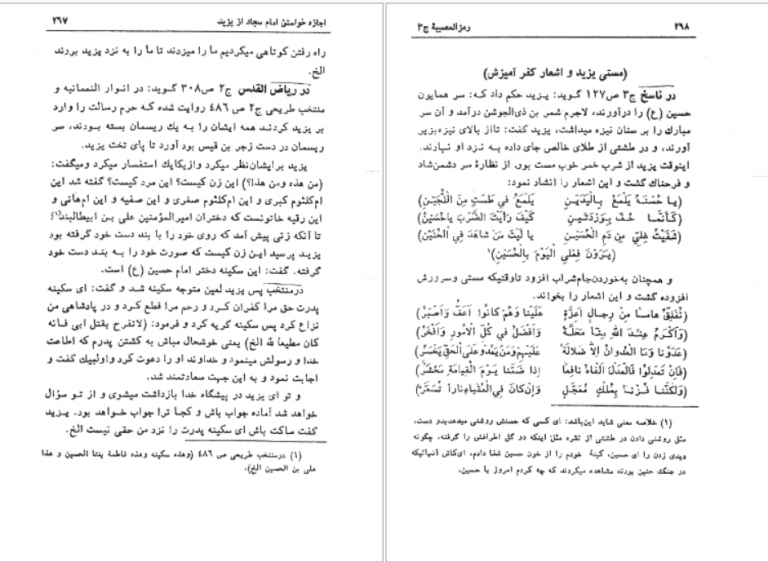 اجازه خواستن امام سجاد از یزید
۲۶۷
راه رفتن کوتاهی میکردیم ما را میزدند تا ما را به نزد یزید بردند
الخ.
در ریاض القدس ج۲ ص۳۰۸ گوید: در انوار النعمانیه و
منتخب طریحی ج۲ ص ۴۸۶ روایت شده که حرم رسالت را وارد
بر یزید کردند همه ایشان را به یك ریسمان بسته بودند، سر
ریسمان در دست زجر بن قیس بود آورد تا پای تخت یزید.
یزید برایشان‌نظر میکرد وازیکایك استفسار میکرد ومیگفت:
(من هذه ومن هذا؟) این زن کیست؟ این مرد کیست؟ گفته شد این
ام‌کلثوم کبری و این ام‌کلثوم صغری و این صفیه و این ام‌هانی و
این رقیه خاتونست که دختران امیرالمؤمنین علی بن ابیطالبند(۱)
تا آنکه زنی پیش آمد که روی خود را با بند دست خود گرفته بود
یزید پرسید این زن کیست که صورت خود را به بند دست خود
گرفته. گفت: این سکینه دختر امام حسین (ع) است.
درمنتخب پس یزید لعین متوجه سکینه شد و گفت: ای سکینه
پدرت حق مرا کفران کرد و رحم مرا قطع کرد و در پادشاهی من
نزاع کرد پس سکینه گریه کرد و فرمود: (لاتفرح بقتل ابی فانه
کان مطیعاً لله الخ) یعنی خوشحال مباش به کشتن پدرم که اطاعت
خدا و رسولش مینمود و خداوند او را دعوت کرد واولبیك گفت و
اجابت نمود و به این جهت سعادتمند شد.
و تو ای یزید در پیشگاه خدا بازداشت میشوی و از تو سؤال
خواهد شد آماده جواب باش و کجا ترا جواب خواهد بود. یزید
گفت ساکت باش ای سکینه پدرت را نزد من حقی نیست الخ.
(۱) درمنتخب طریحی ص ۴۸۶ (وهذه سکینه وهذه فاطمة بنتا الحسین و هذا
علی بن الحسین الخ).
رمزالمصیبة ج۳
۲۶۸
(مستی یزید و اشعار کفر آمیزش)
در ناسخ ج۳ ص۱۲۷ گوید: یزید حکم داد که: سر همایون
حسین (ع) را درآورند، لاجرم شمر بن ذی‌الجوشن درآمد و آن سر
مبارك را بر سنان نیزه میداشت، یزید گفت: تااز بالای نیزه‌بزیر
آورند، و در طشتی از طلای خالص جای داده به نزد او نهادند.
اینوقت یزید از شرب خمر خوب مست بود. از نظارۀ سر دشمن‌شاد
و فرحناك گشت و این اشعار را انشاد نمود:
(یا حُسْنَهُ یَلْمَعُ بِالْیَدَیْنِ یَلْمَعُ فی طَسْتٍ مِنَ اللُّجَیْنِ)
(کَأَنَّما حُفَّ بِوَرْدَتَیْنِ کَیْفَ رَأَیْتَ الضَّرْبَ یاحُسَیْنُ)
(شَفَیْتُ غِلّی مِن دَمِ الْحُسَیْنِ یا لَیْتَ مَنْ شاهَدَ فِی الْحُنَیْنِ)
(یَرَوْنَ فِعْلِی الْیَوْمَ بِالْحُسَیْنِ)۱
و همچنان به‌خوردن‌جام‌شراب افزود تاوقتیکه مستی وسرورش
افزوده گشت و این اشعار را بخواند.
(نُفَلِّقُ هاماً مِنْ رِجالٍ اَعِزَّةٍ عَلَیْنا وَهُمْ کانُوا اَعَقَّ وَاَصْبَرُ)
(وَاَکْرَمُ عِنْدَ اللهِ مِنّا مَحَلَّةً وَاَفْضَلُ فی کُلِّ الْاُمُورِ وَاَفْخَرُ)
(عَدَوْنا وَمَا الْعُدْوانُ اِلّا ضَلالَةٌ عَلَیْهِمْ وَمَنْ یَعْدُو عَلَی الْحَقِّ یَخْسَرُ)
(فَاِنْ تَعْدِلُوا فَالْعَدْلُ اَلْفاهُ نافِعاً اِذا ضَمَّنا یَوْمَ الْقِیامَةِ مَحْشَرُ)
(وَلکِنَّنا فُزْنا بِمُلْكٍ مُعَجَّلٍ وَاِنْ کانَ فِی الْعُقْباءِ ناراً تُسَعَّرُ)
(۱) خلاصه معنی شاید این‌باشد: ای کسی که حسنش روشنی میدهدبدو دست،
مثل روشنی دادن در طشتی از نقره مثل اینکه دو گل اطرافش را گرفته. چگونه
دیدی زدن را ای حسین، کینۀ خودم را از خون حسین شفا دادم، ای‌کاش آنهائیکه
در جنگ حنین بودند مشاهده میکردند که چه کردم امروز با حسین.